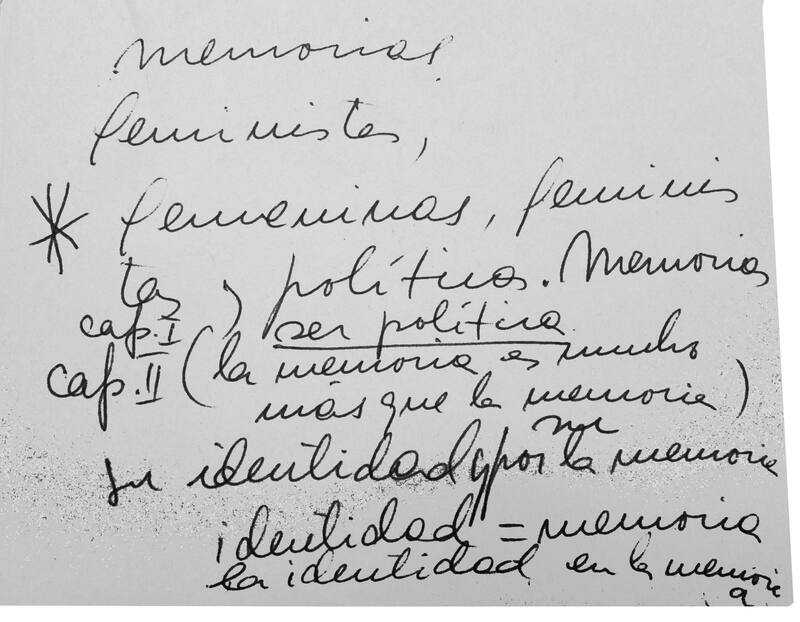 memorias
feministas,
* femeninas, feminis
tas, política. Memorias
cap. I ser política
cap. II (la memoria es mucho
más que la memoria)
su identidad por la memoria
identidad = memoria
la identidad en la memori
a